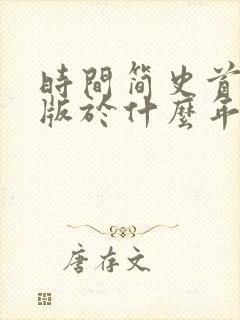 時間简史首
版於什麼年
唐存文